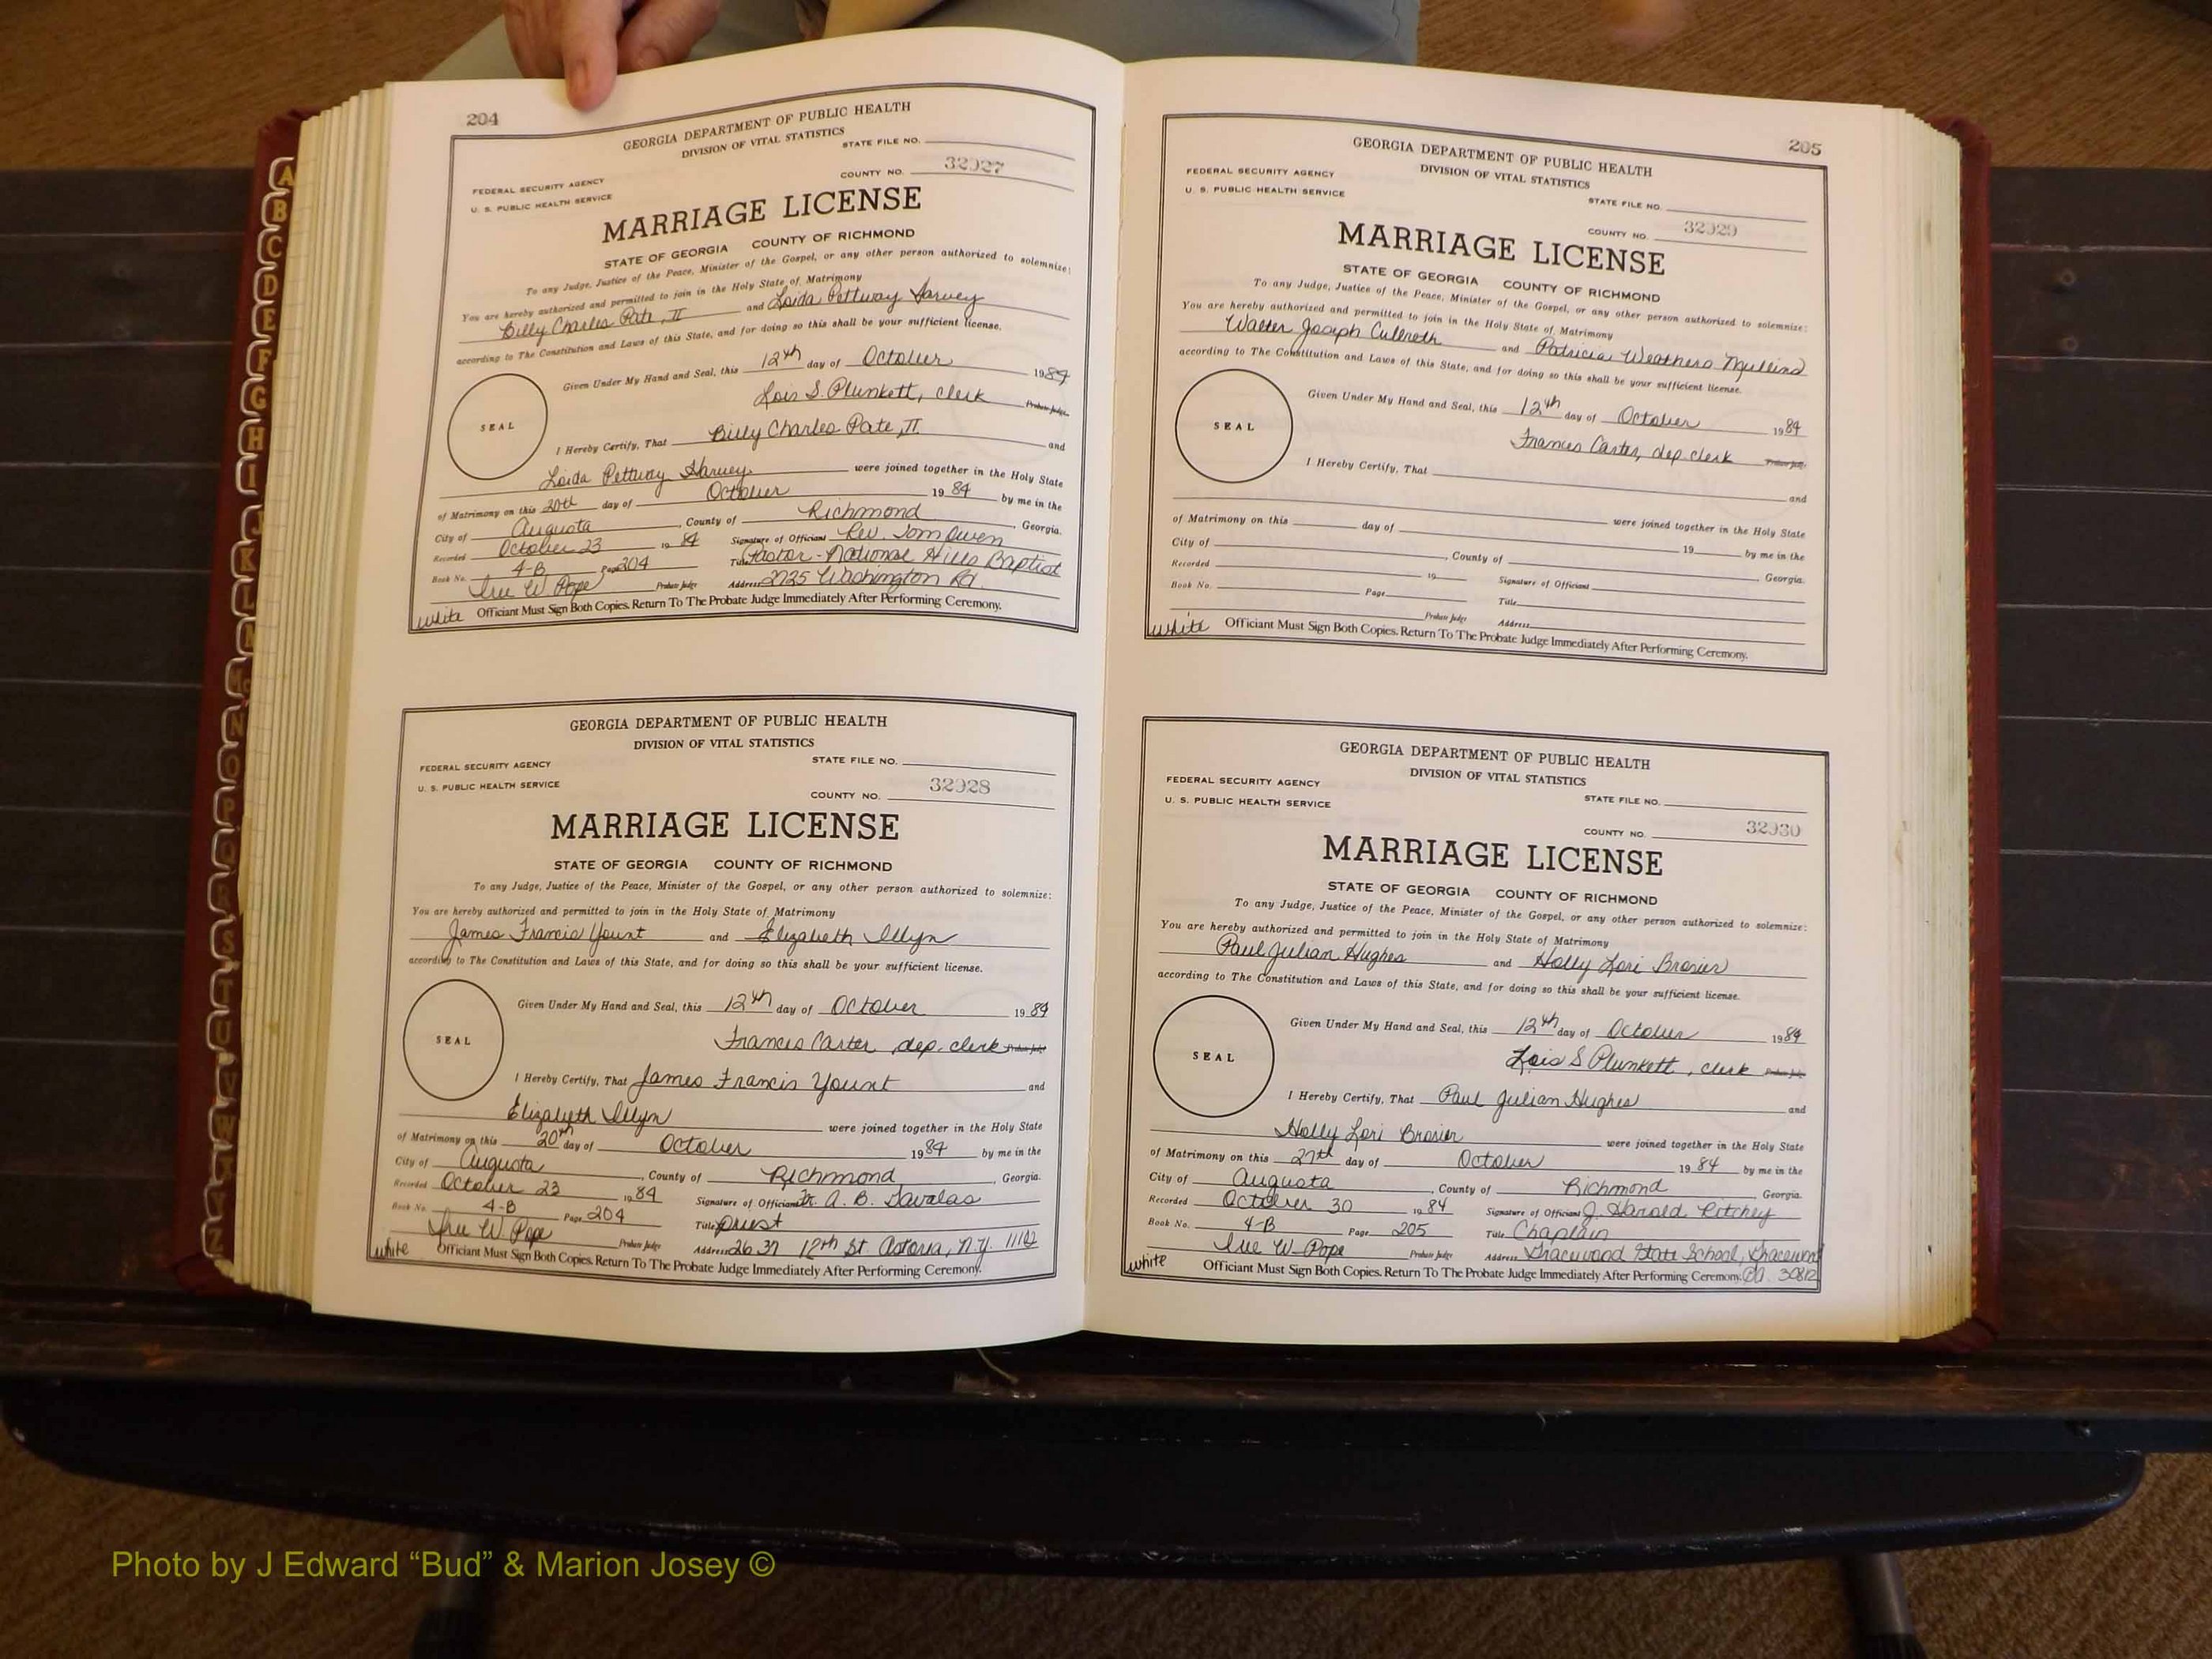 204
GEORGIA DEPARTMENT OF PUBLIC HEALTH
DIVISION OF VITAL STATISTICS
STATE FILE NO.
FEDERAL SECURITY AGENCY
U. S. PUBLIC HEALTH SERVICE
COUNTY NO. 32927
MARRIAGE LICENSE
STATE OF GEORGIA COUNTY OF RICHMOND
To any Judge, Justice of the Peace, Minister of the Gospel, or any other person authorized to solemnize:
You are hereby authorized and permitted to join in the Holy State of Matrimony
Billy Charles Pate, II and Loida Pettway Harvey
according to The Constitution and Laws of this State, and for doing so this shall be your sufficient license.
Given Under My Hand and Seal, this 12th day of October 1984
Lois S. Plunkett, clerk Probate Judge
SEAL
I Hereby Certify, That Billy Charles Pate, II and
Loida Pettway Harvey were joined together in the Holy State
of Matrimony on this 20th day of October 1984 by me in the
City of Augusta, County of Richmond, Georgia.
Recorded October 23 1984 Signature of Officiant Rev. Tom Owen
Book No. 4-B Page 204 Title Pastor - National Hills Baptist
Sue W. Pope Probate Judge Address 2725 Washington Rd.
white Officiant Must Sign Both Copies. Return To The Probate Judge Immediately After Performing Ceremony.
GEORGIA DEPARTMENT OF PUBLIC HEALTH
DIVISION OF VITAL STATISTICS
STATE FILE NO.
FEDERAL SECURITY AGENCY
U. S. PUBLIC HEALTH SERVICE
COUNTY NO. 32928
MARRIAGE LICENSE
STATE OF GEORGIA COUNTY OF RICHMOND
To any Judge, Justice of the Peace, Minister of the Gospel, or any other person authorized to solemnize:
You are hereby authorized and permitted to join in the Holy State of Matrimony
James Francis Yount and Elizabeth Illyn
according to The Constitution and Laws of this State, and for doing so this shall be your sufficient license.
Given Under My Hand and Seal, this 12th day of October 1984
Frances Carter, dep. clerk Probate Judge
SEAL
I Hereby Certify, That James Francis Yount and
Elizabeth Illyn were joined together in the Holy State
of Matrimony on this 20th day of October 1984 by me in the
City of Augusta, County of Richmond, Georgia.
Recorded October 23 1984 Signature of Officiant Fr. A. B. Savalas
Book No. 4-B Page 204 Title priest
Sue W. Pope Probate Judge Address 26 37 12th St. Astoria, N.Y. 11102
white Officiant Must Sign Both Copies. Return To The Probate Judge Immediately After Performing Ceremony.
205
GEORGIA DEPARTMENT OF PUBLIC HEALTH
DIVISION OF VITAL STATISTICS
FEDERAL SECURITY AGENCY
U. S. PUBLIC HEALTH SERVICE
STATE FILE NO.
COUNTY NO. 32929
MARRIAGE LICENSE
STATE OF GEORGIA COUNTY OF RICHMOND
To any Judge, Justice of the Peace, Minister of the Gospel, or any other person authorized to solemnize:
You are hereby authorized and permitted to join in the Holy State of Matrimony
Walter Joseph Culbreth and Patricia Weathers Mullins
according to The Constitution and Laws of this State, and for doing so this shall be your sufficient license.
Given Under My Hand and Seal, this 12th day of October 1984
Frances Carter, dep. clerk Probate Judge
SEAL
I Hereby Certify, That and
were joined together in the Holy State
of Matrimony on this day of 19 by me in the
City of , County of Georgia.
Recorded 19 Signature of Officiant
Book No. Page Title
Probate Judge Address
white Officiant Must Sign Both Copies. Return To The Probate Judge Immediately After Performing Ceremony.
GEORGIA DEPARTMENT OF PUBLIC HEALTH
DIVISION OF VITAL STATISTICS
FEDERAL SECURITY AGENCY
U. S. PUBLIC HEALTH SERVICE
STATE FILE NO.
COUNTY NO. 32930
MARRIAGE LICENSE
STATE OF GEORGIA COUNTY OF RICHMOND
To any Judge, Justice of the Peace, Minister of the Gospel, or any other person authorized to solemnize:
You are hereby authorized and permitted to join in the Holy State of Matrimony
Paul Julian Hughes and Holly Lori Brasier
according to The Constitution and Laws of this State, and for doing so this shall be your sufficient license.
Given Under My Hand and Seal, this 12th day of October 1984
Lois S Plunkett, clerk Probate Judge
SEAL
I Hereby Certify, That Paul Julian Hughes and
Holly Lori Brasier were joined together in the Holy State
of Matrimony on this 27th day of October 1984 by me in the
City of Augusta, County of Richmond, Georgia.
Recorded October 30 1984 Signature of Officiant J. Harold Ritchey
Book No. 4-B Page 205 Title Chaplain
Sue W. Pope Probate Judge Address Gracewood State School, Gracewood
white Officiant Must Sign Both Copies. Return To The Probate Judge Immediately After Performing Ceremony. Ga. 30812
Photo by J Edward “Bud” & Marion Josey ©